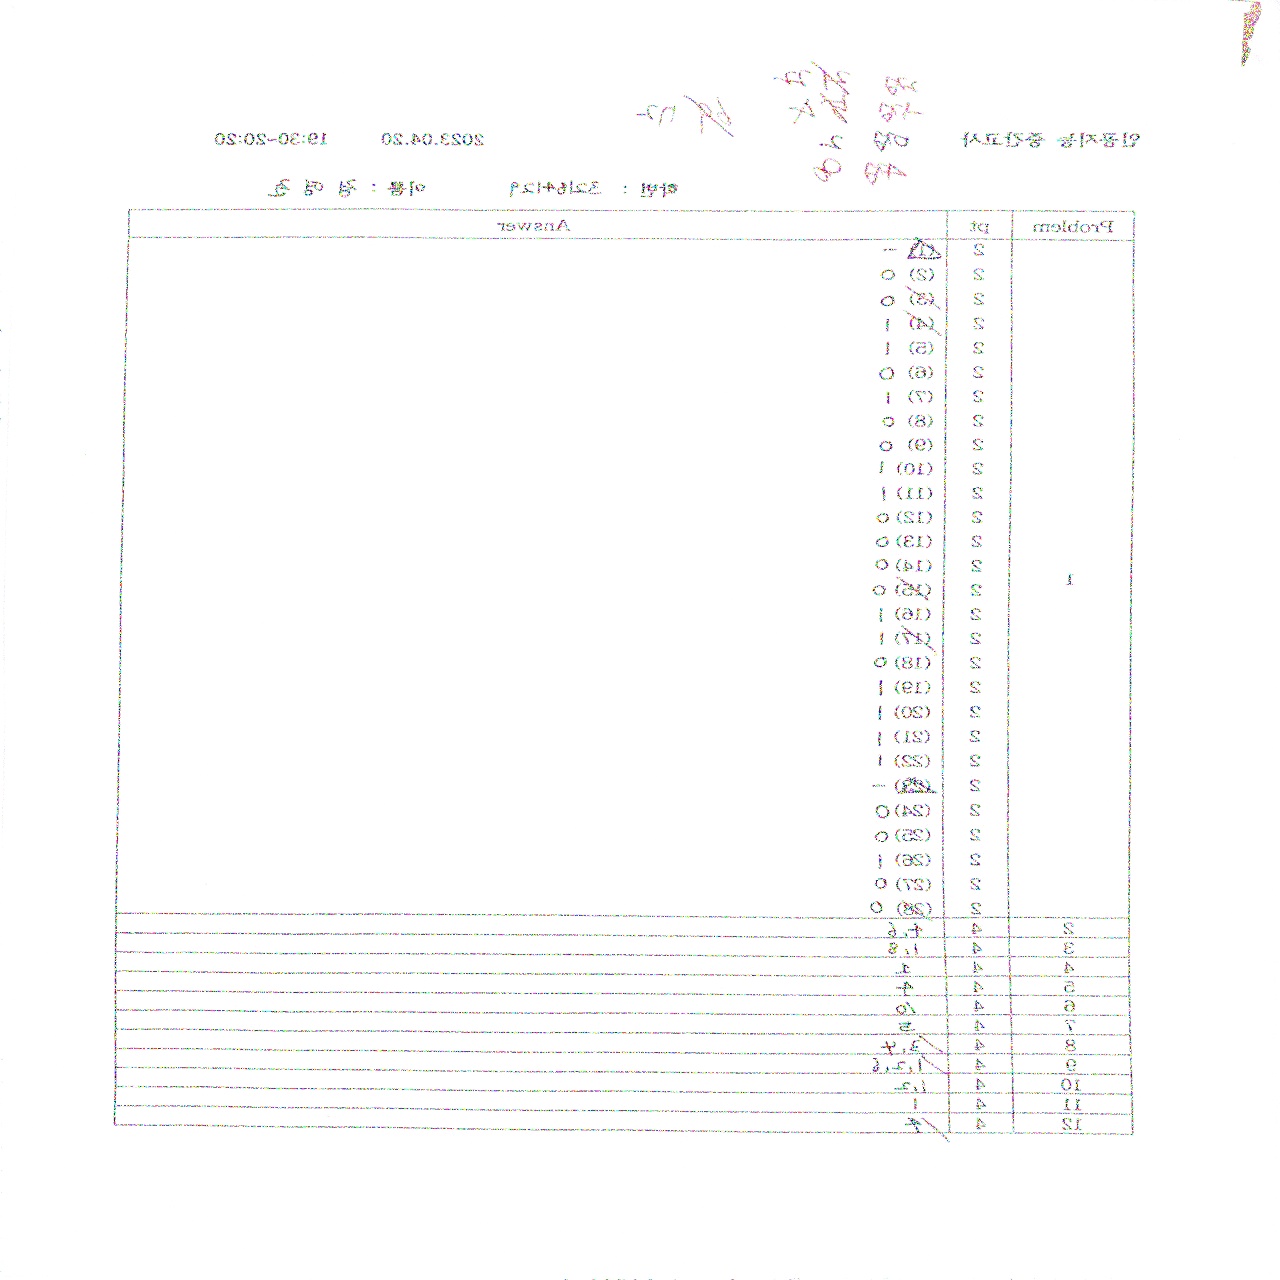 인공지능 중간고사 2023.04.20 19:30-20:20
학번 : 32164129 이름 :
Problem pt Answer
1
2 (1) -
2 (2) 0
2 (3) 0
2 (4) 1
2 (5) 1
2 (6) 0
2 (7) 1
2 (8) 0
2 (9) 0
2 (10) 1
2 (11) 1
2 (12) 0
2 (13) 0
2 (14) 0
2 (15) 0
2 (16) 1
2 (17) 1
2 (18) 0
2 (19) 1
2 (20) 1
2 (21) 1
2 (22) 1
2 (23) -
2 (24) 0
2 (25) 0
2 (26) 1
2 (27) 0
2 (28) 0
2 4 4,6
3 4 1,8
4 4 1
5 4 4
6 4 6
7 4 5
8 4 3,4
9 4 1,2,6
10 4 1,2
11 4 1
12 4 4